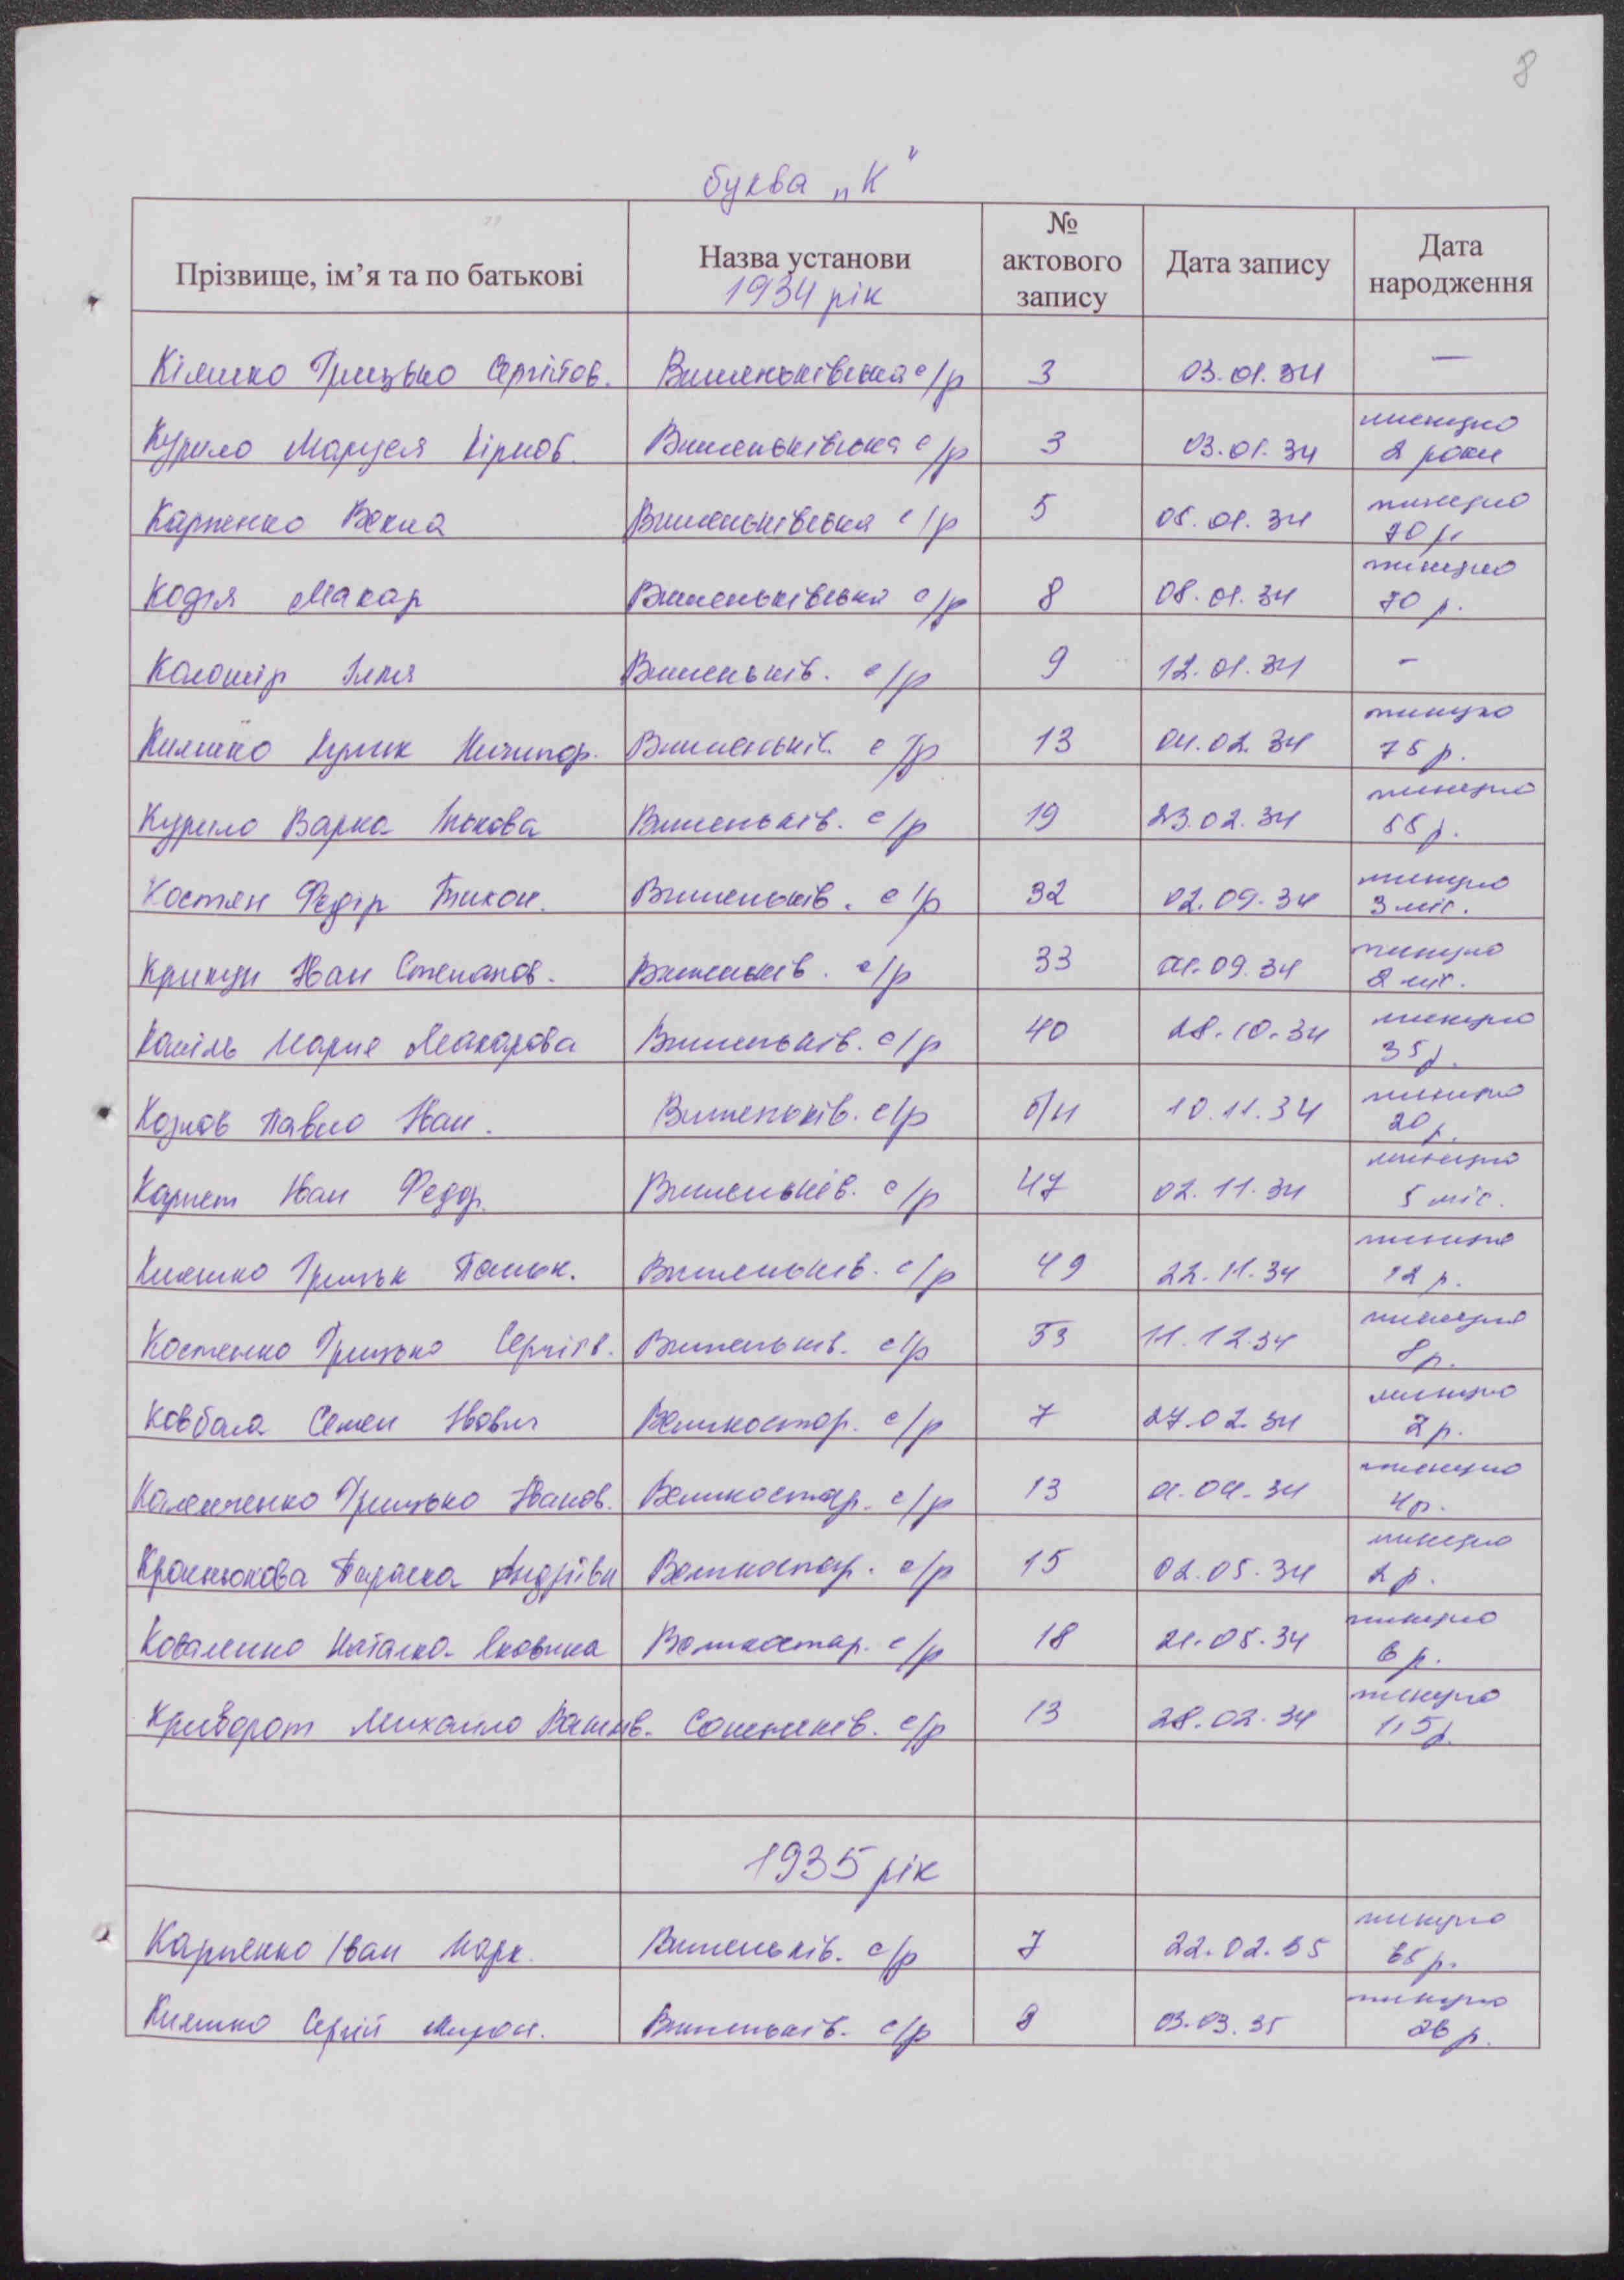 8
буква „К"
Прізвище, ім'я та по батькові Назва установи 1934 рік № актового запису Дата запису Дата народження
Кіяшко Грицько Сергійов. Вишеньківська с/р 3 03.01.34 —
Курило Маруся Кірков. Вишеньківська с/р 3 03.01.34 минуло 2 роки
Карпенко Векла Вишеньківська с/р 5 05.01.34 минуло 70 р.
Кодія Макар Вишеньківська с/р 8 08.01.34 минуло 70 р.
Коломір Ілля Вишеньків. с/р 9 12.01.34 -
Кияшко Ничипор. Вишеньків. с/р 13 04.02.34 минуло 75 р.
Курило Варка Вишеньків. с/р 19 23.02.34 минуло 55 р.
Костян Федір Тихон. Вишеньків. с/р 32 02.09.34 минуло 3 міс.
Іван Степанов. Вишеньків. с/р 33 01.09.34 минуло 2 міс.
Марія Макарова Вишеньків. с/р 40 28.10.34 минуло 35 р.
Козлов Павло Іван. Вишеньків. с/р б/н 10.11.34 минуло 20 р.
Карпет Іван Федор. Вишеньків. с/р 47 02.11.34 минуло 5 міс.
Кияшко Грицьк Паньк. Вишеньків. с/р 49 22.11.34 минуло 12 р.
Костенко Грицько Сергіїв. Вишеньків. с/р 53 11.12.34 минуло 8 р.
Ковбаса Семен Вишеньків Великостар. с/р 7 27.02.34 минуло 2 р.
Грицько Іванов. Великостар. с/р 13 01.04.34 минуло 4 р.
Параска Андріївн Великостар. с/р 15 02.05.34 минуло 2 р.
Коваленко Наталка Яковлівна Великостар. с/р 18 21.05.34 минуло 6 р.
Криворот Михайло Сошників. с/р 13 28.02.34 минуло 1,5 р.
1935 рік
Карпенко Іван Марк. Вишеньків. с/р 7 22.02.35 минуло 65 р.
Кияшко Сергій Мирон. Вишеньків. с/р 8 03.03.35 минуло 26 р.